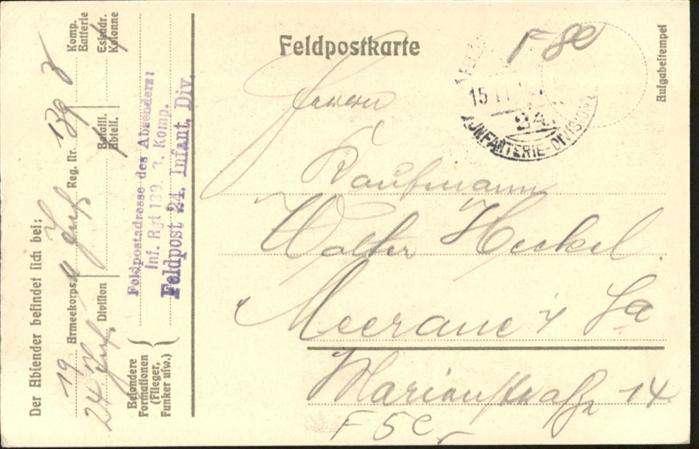 Feldpostkarte
F 80
Aufgabestempel
15
24
INFANTERIE-DIVISION
Herrn
Kaufmann
Walter Heckel
Meerane i/Sa
Marienstraße 14
F 5C
Der Absender befindet sich bei:
19 Armeekorps
24 Inf. Division
Inf. Reg. Nr. 139
Bataill.
Abteil.
Komp.
Batterie
Eskadr.
Kolonne
Besondere
Formationen
(Flieger,
Funker usw.)
Feldpostadresse des Absenders:
Inf. Rgt 139. 7. Komp.
Feldpost 24. Infant. Div.